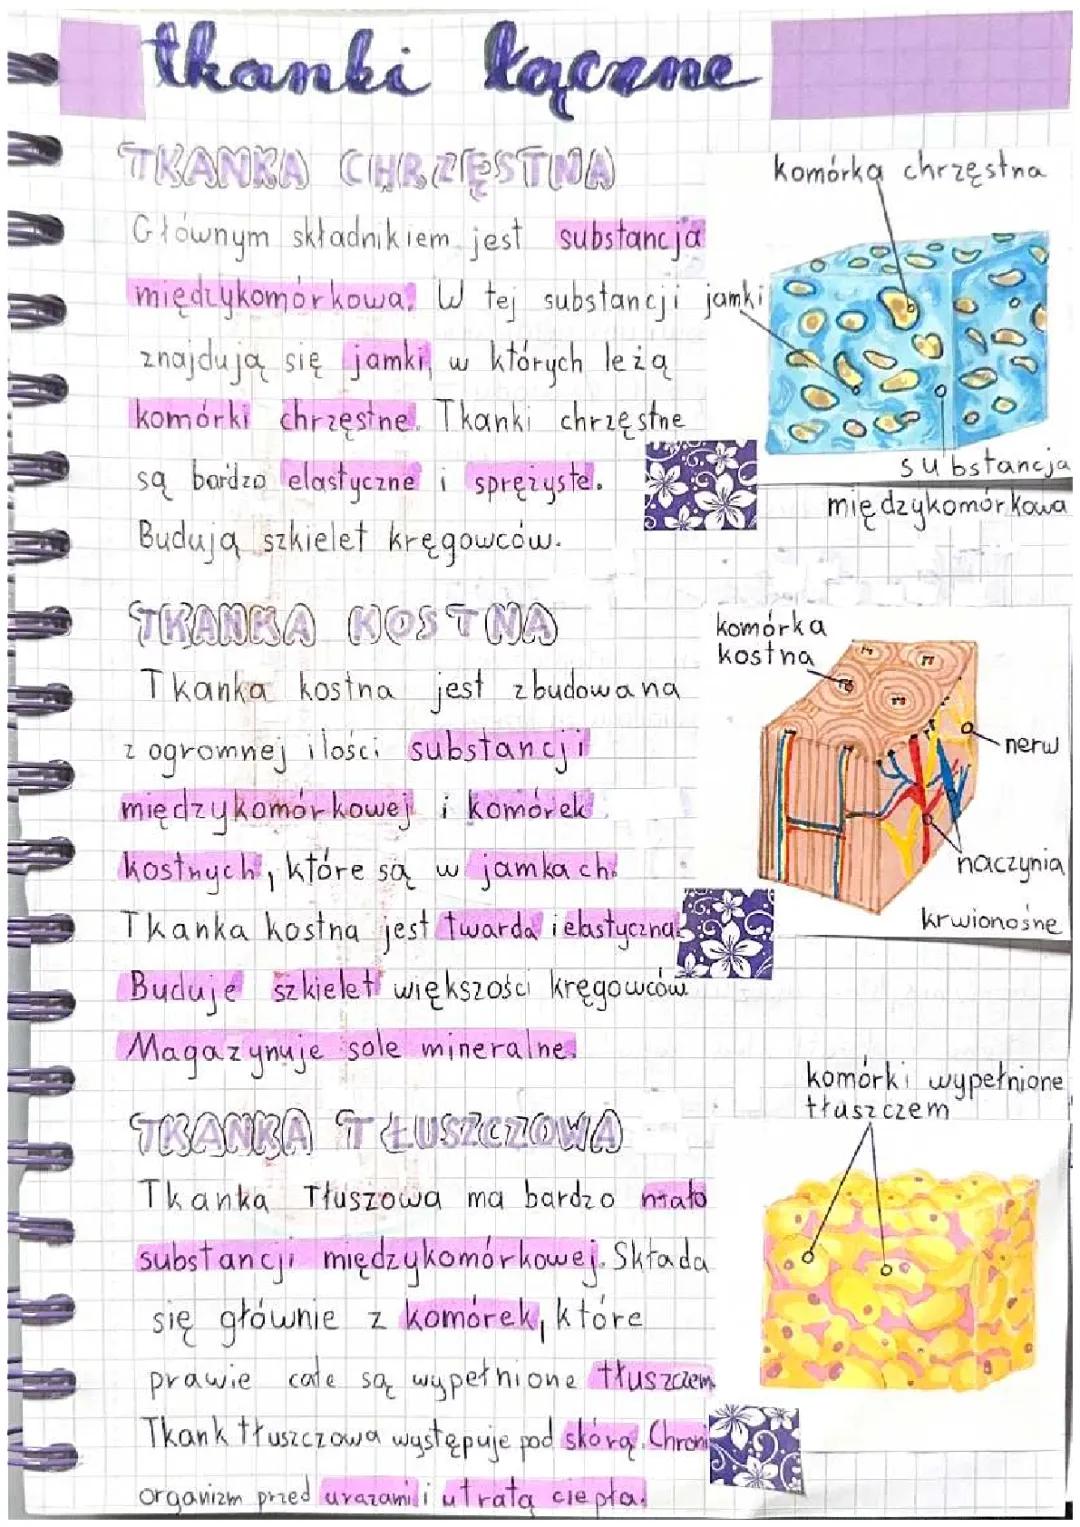 tkanki łączne
TKANKA CHRZĘSTNA
Głównym składnikiem jest substancja
międzykomórkowa. W tej substancji
znajdują się jamki, w których leżą
komórki chrzęstne. Tkanki chrzęstne
są bardzo elastyczne i sprężyste.
Budują szkielet kręgowców.
komórka chrzęstna
jamki
substancja
międzykomórkowa
TKANKA KOSTNA
Tkanka kostna jest zbudowana
z ogromnej ilości substancji
międzykomórkowej i komórek
kostnych, które są w jamkach.
Tkanka kostna jest twarda i elastyczna.
Buduje szkielet większości kręgowców.
Magazynuje sole mineralne.
komórka
kostna
nerw
naczynia
krwionośne
TKANKA TŁUSZCZOWA
Tkanka Tłuszowa ma bardzo mało
substancji międzykomórkowej. Składa
się głównie z komórek, które
prawie całe są wypełnione tłuszczem
Tkank tłuszczowa występuje pod skórą. Chroni
organizm przed urazami i utratą ciepła.
komórki wypełnione
tłuszczem